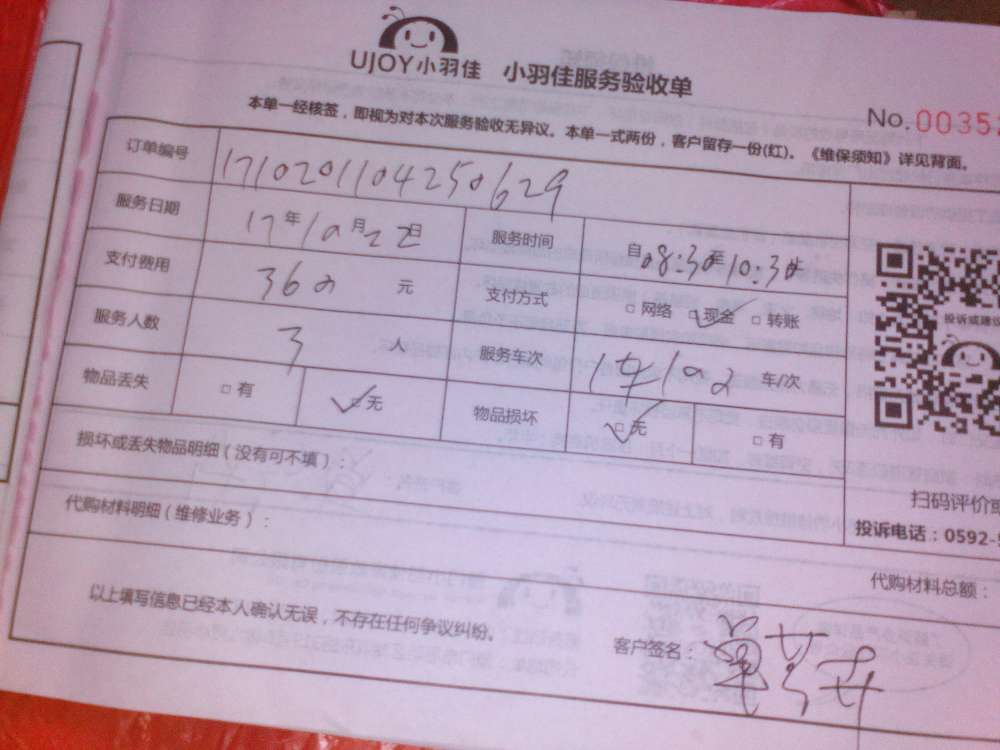 UJOY小羽佳 小羽佳服务验收单
No.0035
本单一经核签，即视为对本次服务验收无异议。本单一式两份，客户留存一份(红)。《维保须知》详见背面。
订单编号 1710201104250629
服务日期 17年10月22日 服务时间 自08:30至10:30止
支付费用 360元 支付方式 □网络 ☑现金 □转账
服务人数 3人 服务车次 车/次
物品丢失 □有 ☑无 物品损坏 ☑无 □有
损坏或丢失物品明细（没有可不填）：
代购材料明细（维修业务）：
投诉或建议
扫码评价或
投诉电话：0592-
代购材料总额：
以上填写信息已经本人确认无误，不存在任何争议纠纷。
客户签名：